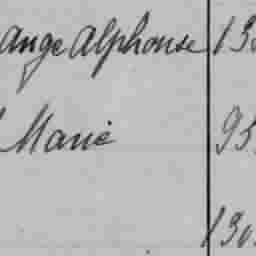 Ange Alphonse 13
Marie 95
130